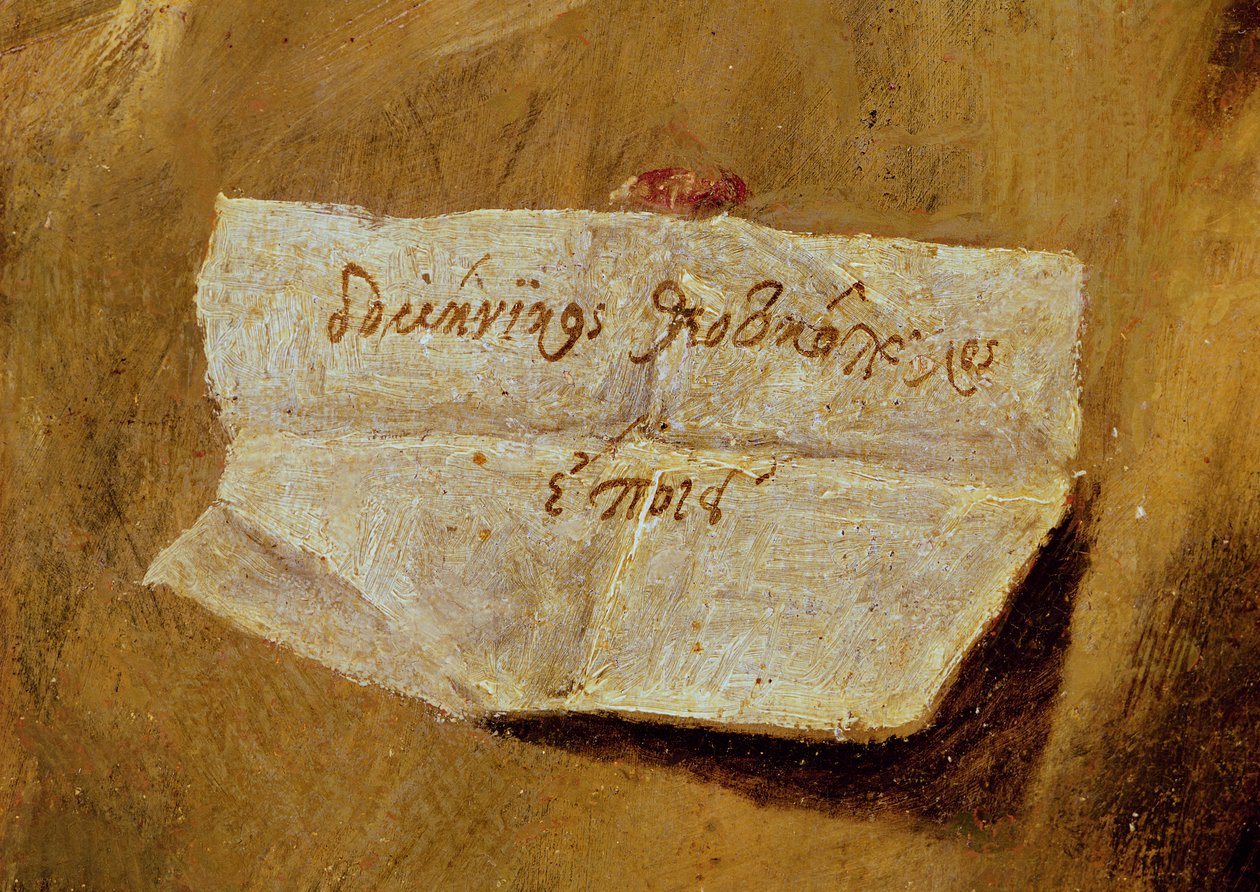 δομήνϊκος θεοτοκόπουλος
ἐποίει